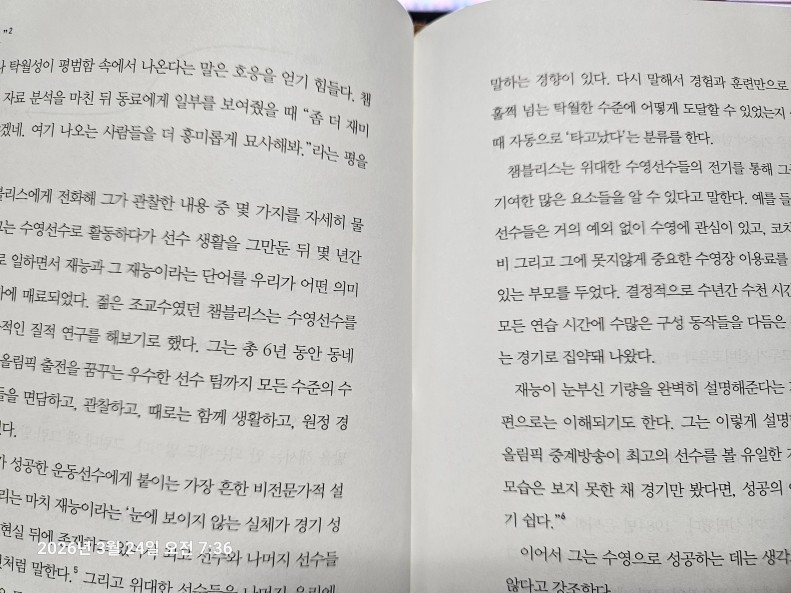 ”2
탁월성이 평범함 속에서 나온다는 말은 호응을 얻기 힘들다. 챔
자료 분석을 마친 뒤 동료에게 일부를 보여줬을 때 “좀 더 재미
겠네. 여기 나오는 사람들을 더 흥미롭게 묘사해봐.”라는 평을
블리스에게 전화해 그가 관찰한 내용 중 몇 가지를 자세히 물
는 수영선수로 활동하다가 선수 생활을 그만둔 뒤 몇 년간
로 일하면서 재능과 그 재능이라는 단어를 우리가 어떤 의미
에 매료되었다. 젊은 조교수였던 챔블리스는 수영선수를
적인 질적 연구를 해보기로 했다. 그는 총 6년 동안 동네
올림픽 출전을 꿈꾸는 우수한 선수 팀까지 모든 수준의 수
들을 면담하고, 관찰하고, 때로는 함께 생활하고, 원정 경
다.
가 성공한 운동선수에게 붙이는 가장 흔한 비전문가적 설
리는 마치 재능이라는 ‘눈에 보이지 않는 실체가 경기 성
현실 뒤에 존재하고 선수와 나머지 선수들
것처럼 말한다.5 그리고 위대한 선수들을 나머지 우리에
2026년 3월 24일 오전 7:36
말하는 경향이 있다. 다시 말해서 경험과 훈련만으로
훌쩍 넘는 탁월한 수준에 어떻게 도달할 수 있었는지
때 자동으로 ‘타고났다’는 분류를 한다.
챔블리스는 위대한 수영선수들의 전기를 통해 그
기여한 많은 요소들을 알 수 있다고 말한다. 예를 들
선수들은 거의 예외 없이 수영에 관심이 있고, 코치
비 그리고 그에 못지않게 중요한 수영장 이용료를
있는 부모를 두었다. 결정적으로 수년간 수천 시간
모든 연습 시간에 수많은 구성 동작들을 다듬은
는 경기로 집약돼 나왔다.
재능이 눈부신 기량을 완벽히 설명해준다는
편으로는 이해되기도 한다. 그는 이렇게 설명
올림픽 중계방송이 최고의 선수를 볼 유일한
모습은 보지 못한 채 경기만 봤다면, 성공의
기 쉽다.”6
이어서 그는 수영으로 성공하는 데는 생각
않다고 강조한다.